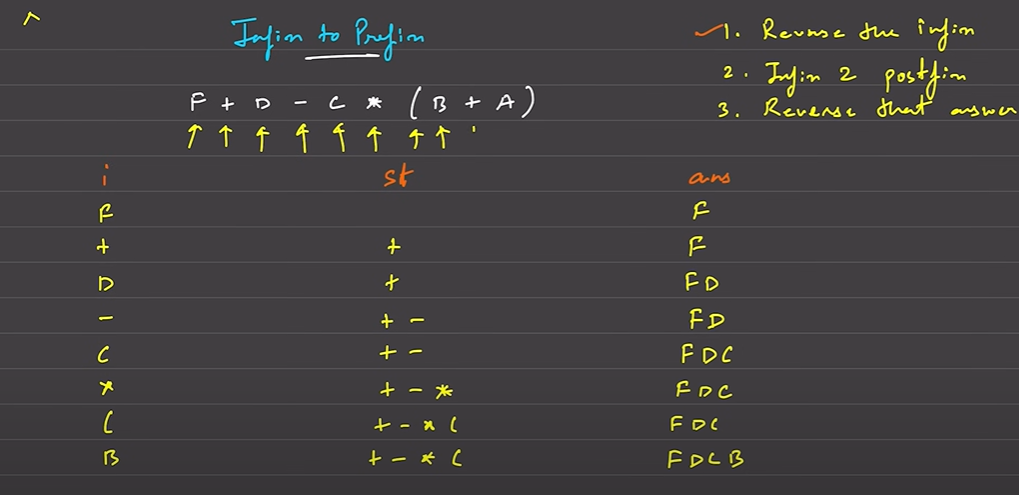 Infix to Prefix
1. Reverse the infix
2. Infix 2 postfix
3. Reverse that answer
F + D - C * (B + A)
i st ans
F F
+ + F
D + FD
- + - FD
C + - FDC
* + - * FDC
( + - * ( FDC
B + - * ( FDCB